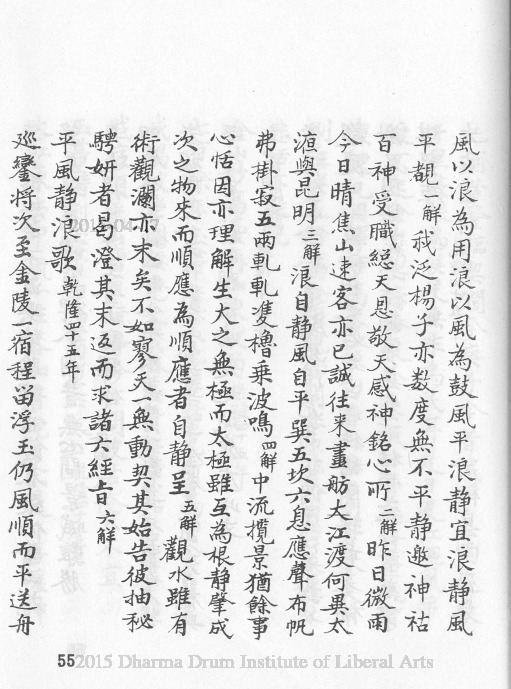 風以浪為用浪以風為鼓風平浪静宜浪静風
平覩一解我泛楊子亦数度無不平静邀神祜
百神受職総天恩敬天感神銘心所二解昨日微雨
今日晴焦山逺客亦已誠往来畫舫大江渡何異太
液與昆明三解浪自静風自平巽五坎六息應聲布帆
弗掛寂五兩軋軋雙櫓乗波鳴四解中流攬景猶餘事
心恬因亦理解生大之無極而太極雖互為根静肇成
次之物来而順應為順應者自静呈五解觀水雖有
術觀瀾亦末矣不如寥天一無動契其始告彼抽秘
騁妍者曷澄其末返而求諸六經上日六解
平風静浪歌乾隆四十五年
廵鑾将次至金陵一宿程留浮玉仍風順而平送舟
55
2015 Dharma Drum Institute of Liberal Arts